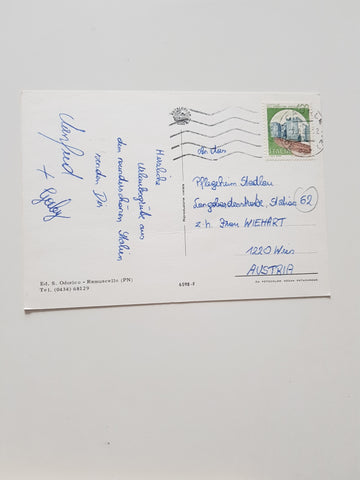 Herzliche
Urlaubsgrüße aus
dem wunderschönen Italien
senden Dir
Manfred
+ Gaby
An das
Pflegeheim Stadlau
Langobardenstraße, Station 62
z.H. Frau WIEHART
1220 Wien
AUSTRIA
Ed. S. Odorico - Ramuscello (PN)
Tel. (0434) 68129
6098-F